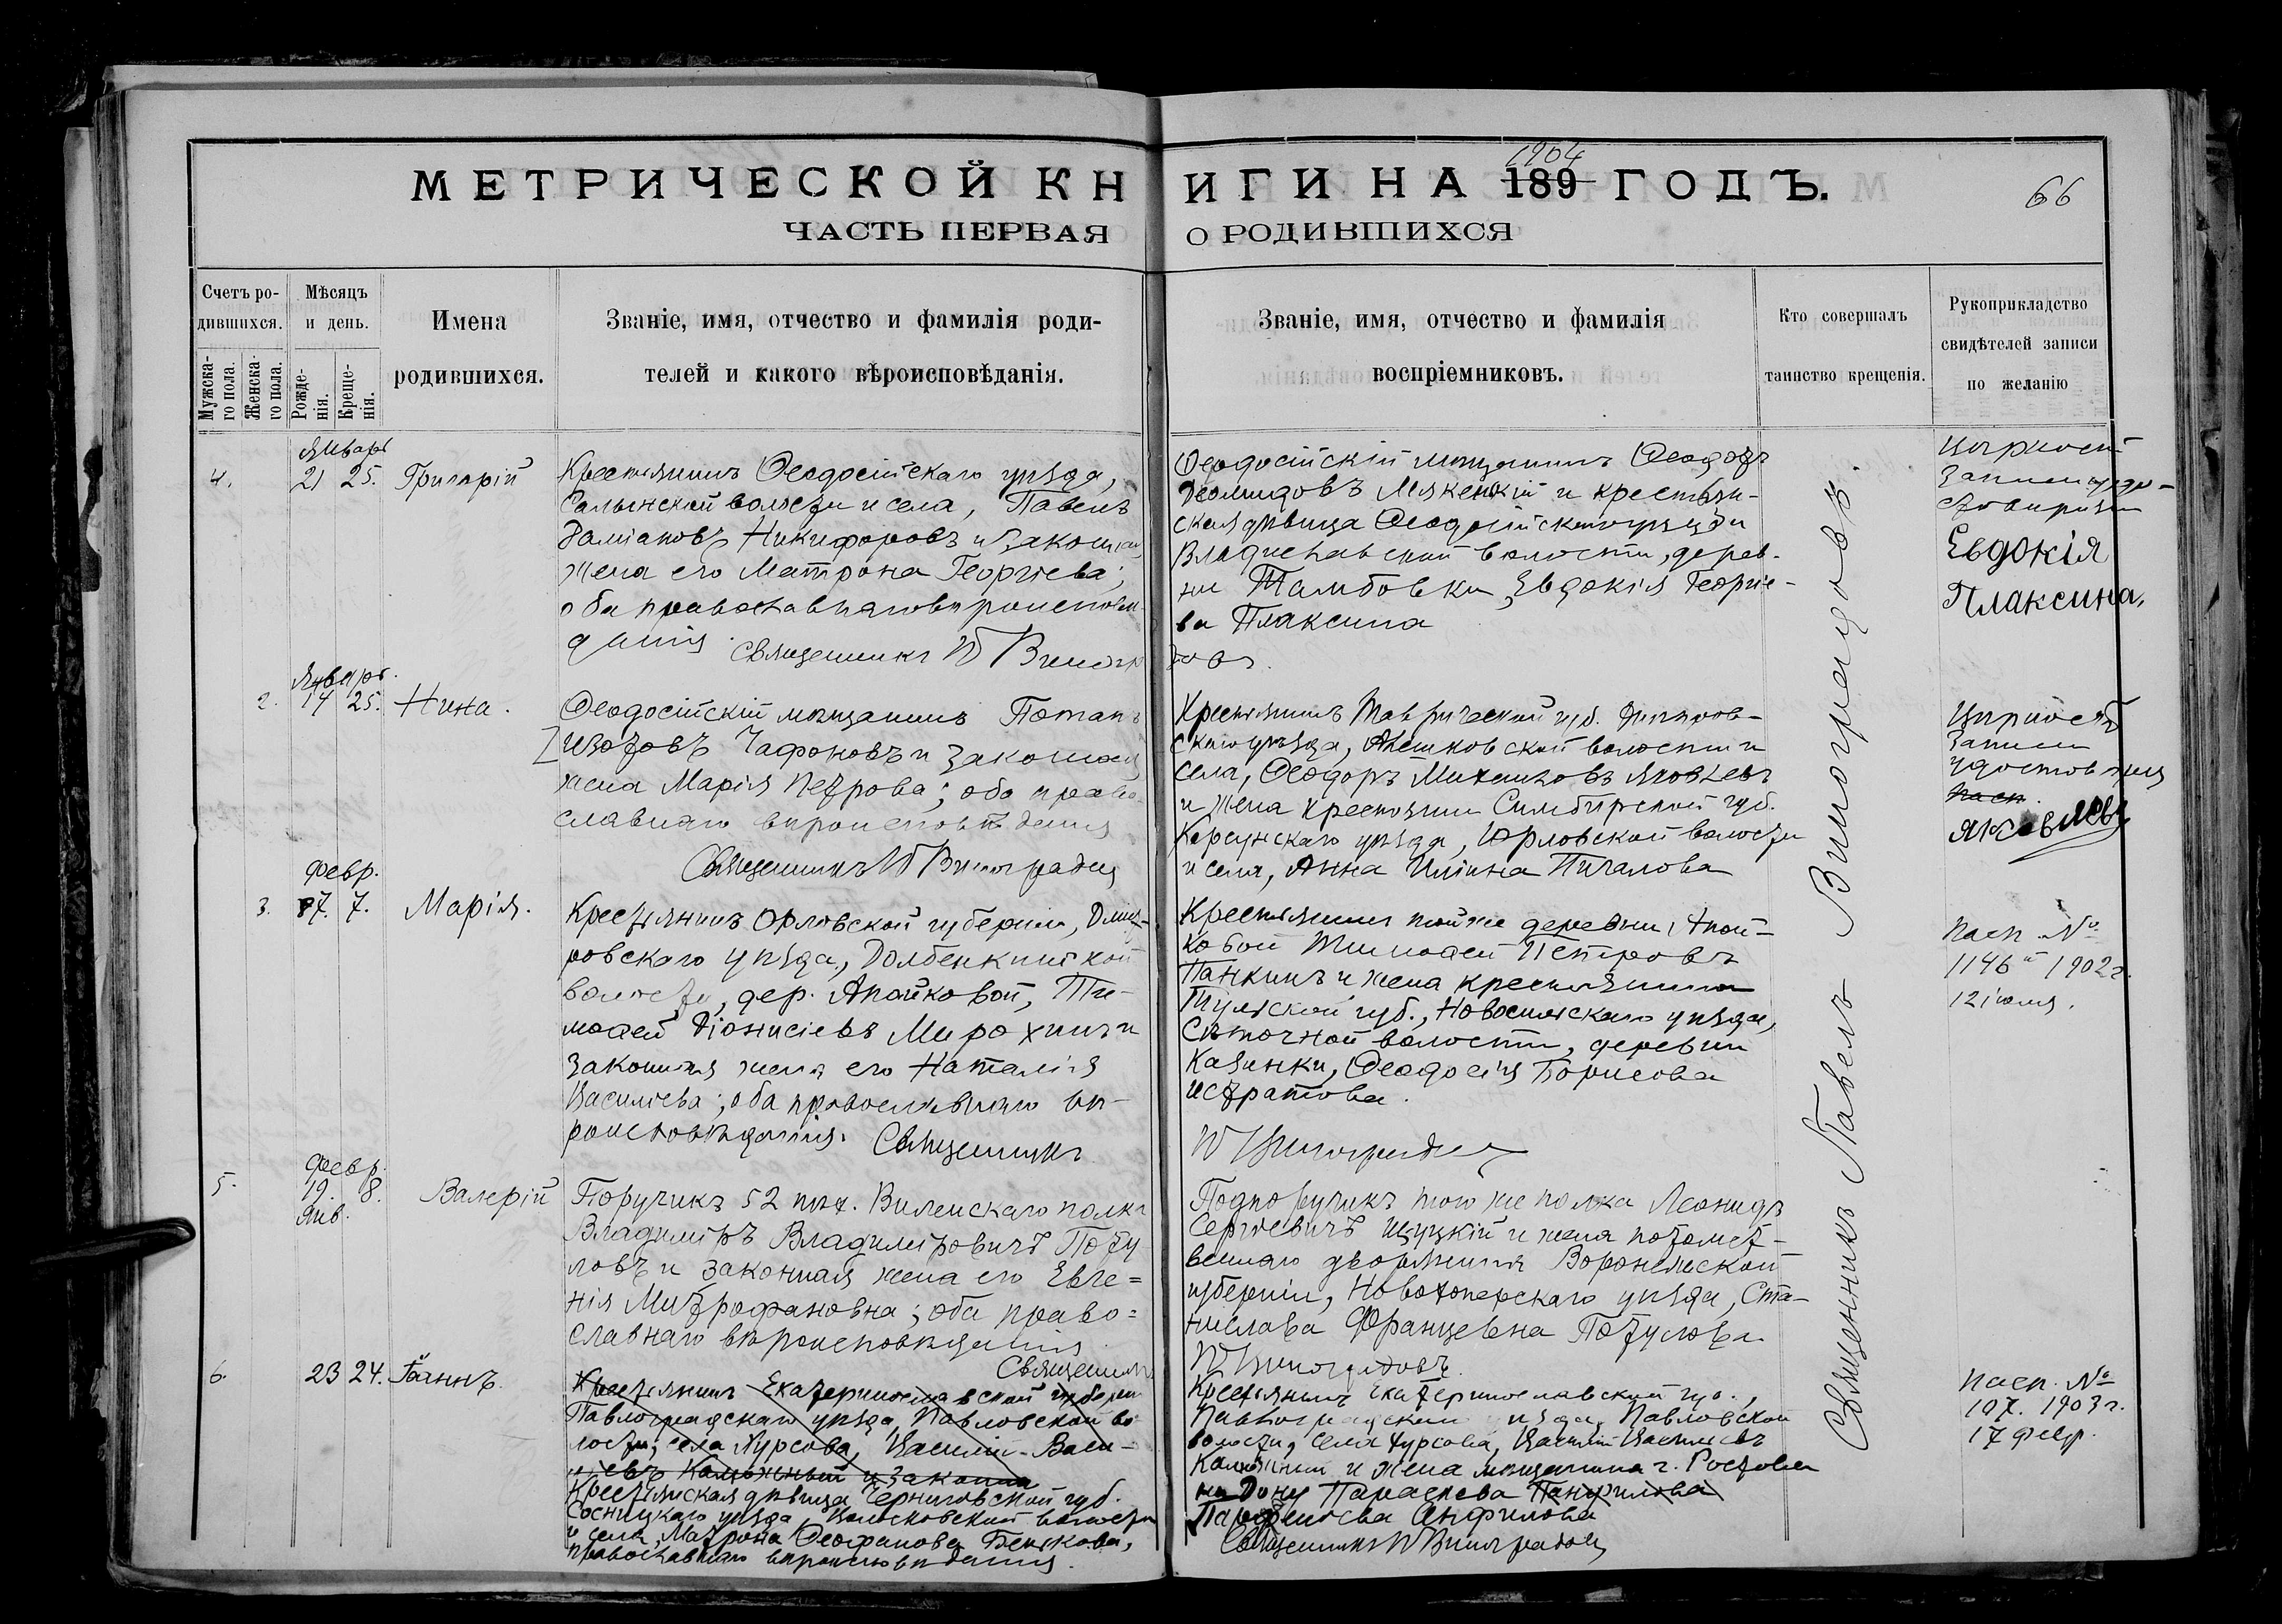 1904
МЕТРИЧЕСКОЙ КНИГИ НА 189 ГОДЪ.
66
ЧАСТЬ ПЕРВАЯ О РОДИВШИХСЯ
Счетъ ро-
дившихся.
Мужска-
го пола.
Женска-
го пола.
Мѣсяцъ
и день.
Рожде-
нія.
Креще-
нія.
Имена
родившихся.
Званіе, имя, отчество и фамилія роди-
телей и какого вѣроисповѣданія.
Званіе, имя, отчество и фамилія
воспріемниковъ.
Кто совершалъ
таинство крещенія.
Рукоприкладство
свидѣтелей записи
по желанію
Январь
4. 21 25. Григорій
Крестьянинъ Ѳеодосійскаго уѣзда,
волости и села, Павелъ
Даміановъ Никифоровъ и законная
жена его Матрона Георгіева;
оба православнаго вѣроисповѣ-
данія. Священникъ П Виноградовъ.
Ѳеодосійскій мѣщанинъ Ѳеодоръ
и крестьян-
ская дѣвица Ѳеодосійскаго уѣзда
Владиславской волости, дерев-
ни Тамбовки, Евдокія Георгіе-
ва Плаксина
Евдокія
Плаксина.
Январь.
2. 14 25. Нина.
Ѳеодосійскій мѣщанинъ Потапъ
Изотовъ и законная
жена Марія Петрова; оба право-
славнаго вѣроисповѣданія
Священникъ П Виноградовъ
Крестьянинъ Таврической губ. Днѣпров-
скаго уѣзда, Алешковской волости и
села, Ѳеодоръ Михаиловъ Яковлевъ
и жена крестьянина Симбирской губ.
Корсунскаго уѣзда, Юрловской волости
и села, Анна Пичалова
Вѣрность
записи
пасп.
Яковлевъ
Февр.
3. 7. 7. Марія.
Крестьянинъ Орловской губерніи, Дмит-
ровскаго уѣзда, Долбенкинской
волости, дер. Апойковой, Ти-
моѳей Діонисіевъ Мирохинъ и
законная жена его Наталія
Василіева; оба православнаго вѣ-
роисповѣданія. Священникъ
П Виноградовъ
Крестьянинъ той же деревни, Апой-
ковой Тимоѳей Петровъ
Панкинъ и жена крестьянина
Тульской губ., Новосильскаго уѣзда,
волости, деревни
Казинки, Ѳеодосія Борисова
Истратова.
Пасп. №
1146 1902 г.
12 іюля.
Февр.
5. 19. 8. Валерій
Янв.
Поручикъ 52 пѣх. Виленскаго полка
Владиміръ Владиміровичъ Поту
ловъ и законная жена его Евге=
нія Митрофановна; оба право=
славнаго вѣроисповѣданія
Священникъ П Виноградовъ.
Подпоручикъ того же полка Леонидъ
Сергіевичъ Щуцкій и жена потомст-
веннаго дворянина Воронежской
губерніи, Новохоперскаго уѣзда, Ста-
нислава Францевна Потулова
6. 23 24. Іоаннъ.
Крестьянинъ Екатеринославской губерніи
Павлоградскаго уѣзда, Павловской во
лости, села Василій Васи-
льевъ и законная
Крестьянская дѣвица Черниговской губ.
Сосницкаго уѣзда, волости
и села, Матрона Ѳеофанова
православнаго вѣроисповѣданія.
Крестьянинъ Екатеринославской губ.,
Павлоградскаго уѣзда, Павловской
волости, села Василій Василіевъ
и жена мѣщанина г. Ростова
на Дону Параскева Панфилова
Парѳеніева Анфилова
Священникъ П Виноградовъ
Пасп. №
107. 1903 г.
17 февр.
Священникъ Павелъ Виноградовъ.